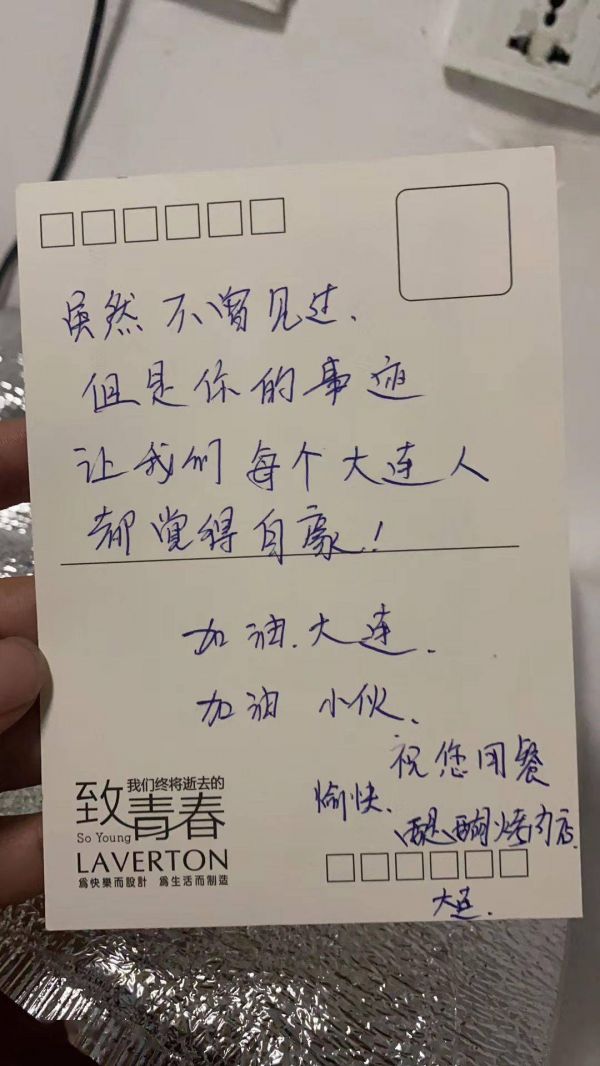 虽然不曾见过.
但是你的事迹
让我们每个大连人
都觉得自豪!
加油.大连.
加油 小伙.
祝您用餐
愉快.
醍醐烤肉店.
大连.
我们终将逝去的
致青春
So Young
LAVERTON
為快樂而設計 為生活而制造